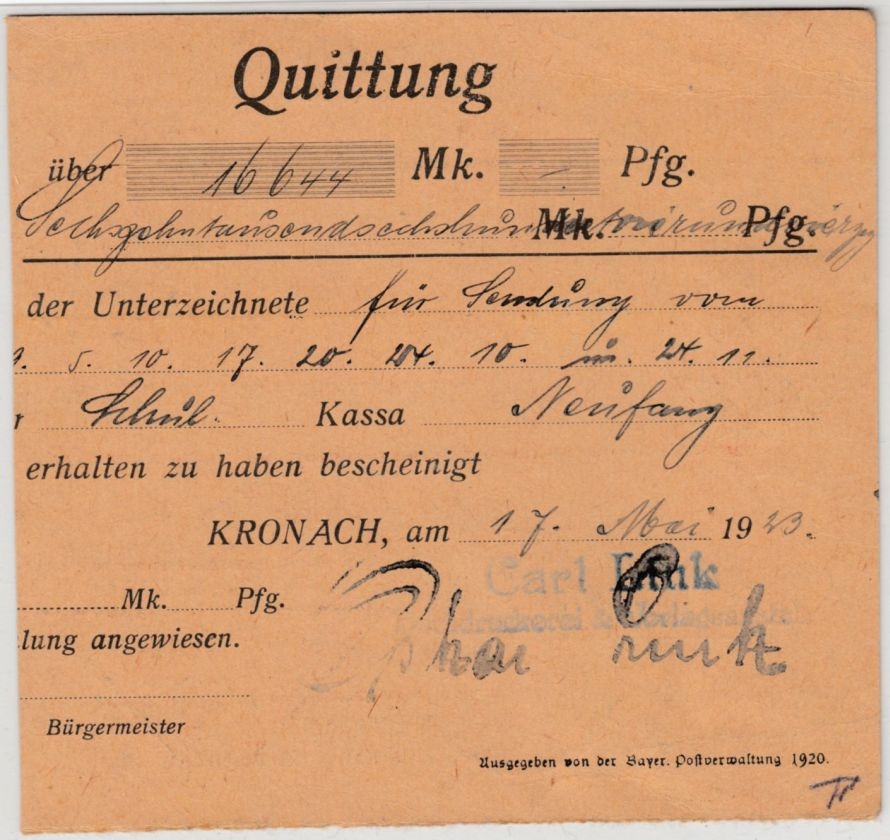 Quittung
über 16644 Mk. - Pfg.
Sechzehntausendsechshundertvierundvierzig Mk. Pfg.
der Unterzeichnete für Sendung vom
5. 10. 17. 20. 24. 10. 24. 11.
Schul. Kassa Neufang
erhalten zu haben bescheinigt
KRONACH, am 17. Mai 1923.
Carl Link
Mk. Pfg.
lung angewiesen.
Bürgermeister
Ausgegeben von der Bayer. Postverwaltung 1920.